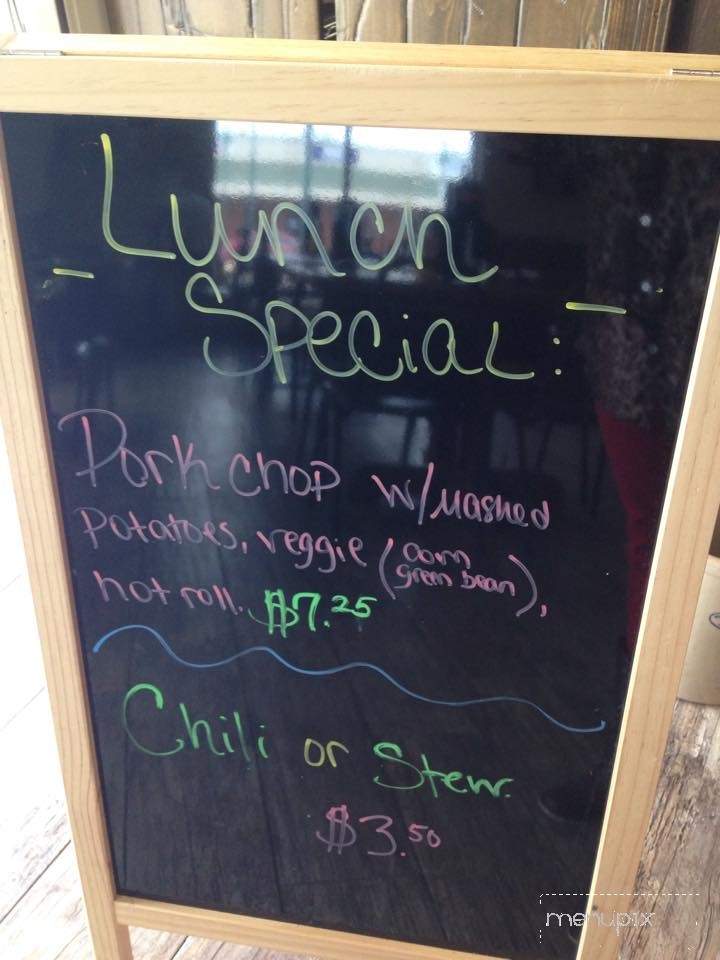 - Lunch -
Special:
Pork chop w/Mashed
potatoes, veggie (corn
green bean),
hot roll. $7.25
Chili or Stew.
$3.50
menupix